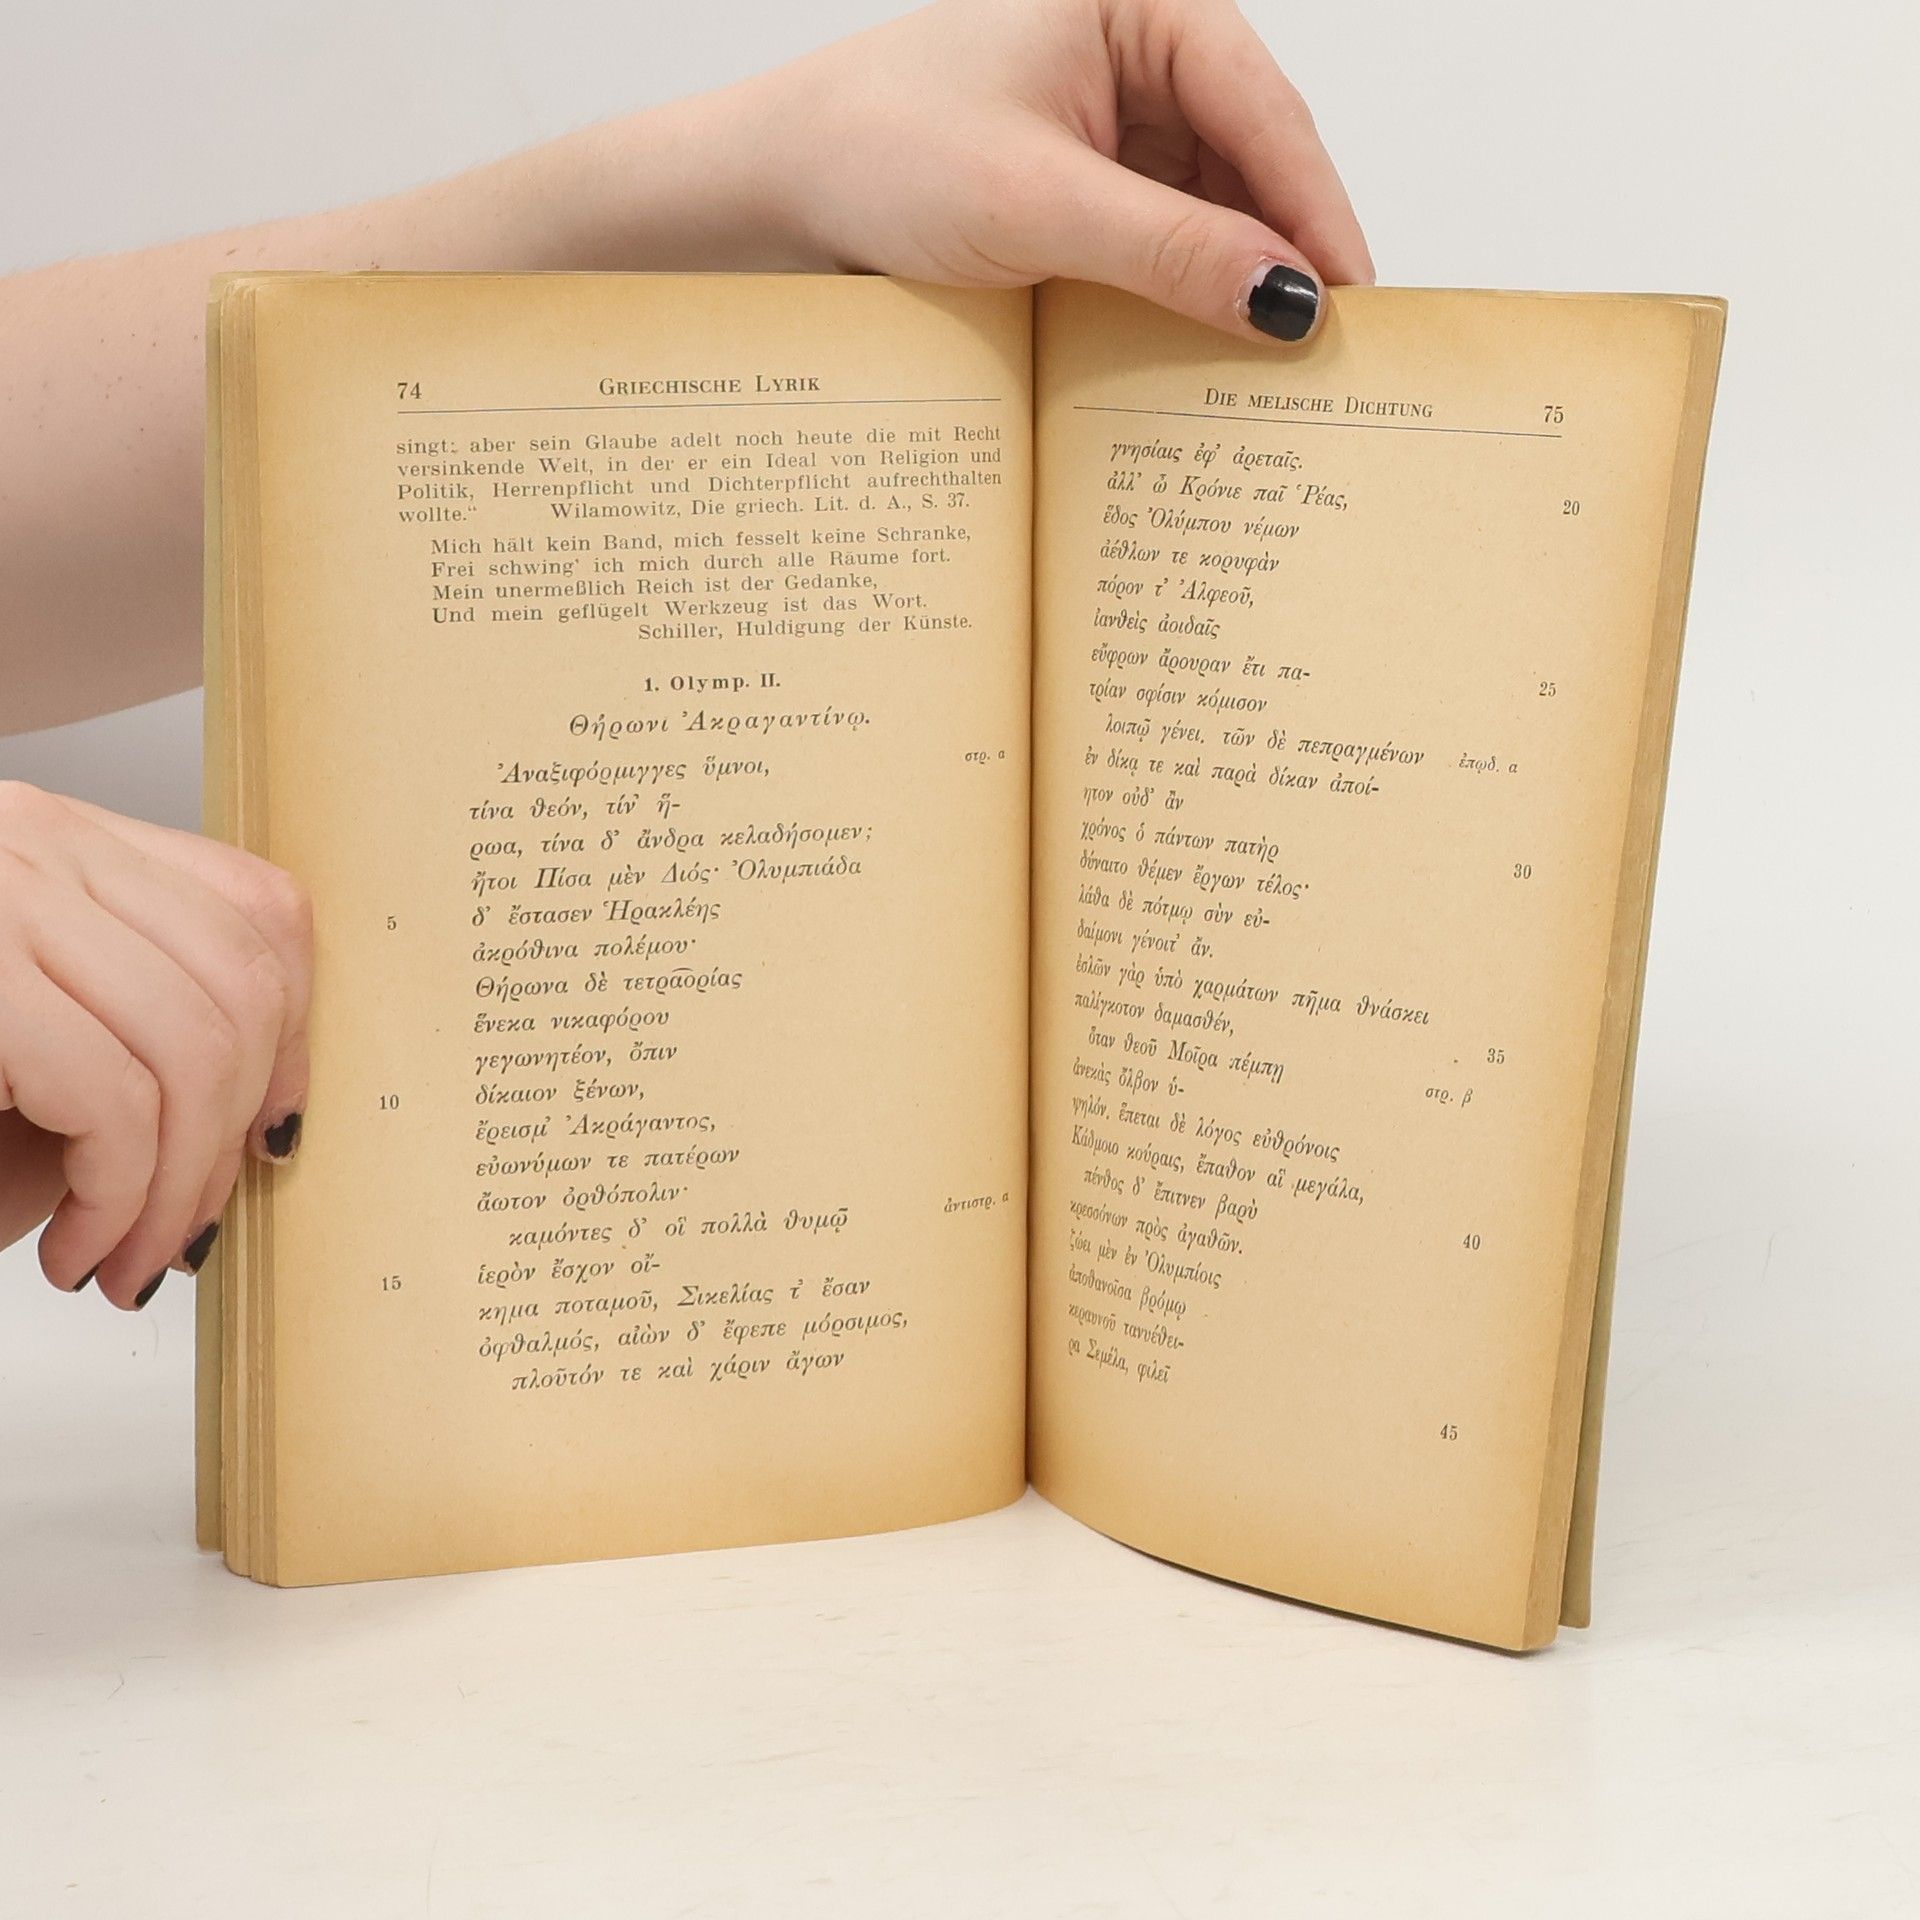 74
GRIECHISCHE LYRIK
singt: aber sein Glaube adelt noch heute die mit Recht
versinkende Welt, in der er ein Ideal von Religion und
Politik, Herrenpflicht und Dichterpflicht aufrechthalten
wollte.“ Wilamowitz, Die griech. Lit. d. A., S. 37.
Mich hält kein Band, mich fesselt keine Schranke,
Frei schwing’ ich mich durch alle Räume fort.
Mein unermeßlich Reich ist der Gedanke,
Und mein geflügelt Werkzeug ist das Wort.
Schiller, Huldigung der Künste.
1. Olymp. II.
Θήρωνι Ἀκραγαντίνῳ.
Ἀναξιφόρμιγγες ὕμνοι, στρ. α
τίνα θεόν, τίν’ ἥ-
ρωα, τίνα δ’ ἄνδρα κελαδήσομεν;
ἤτοι Πίσα μὲν Διός· Ὀλυμπιάδα
5 δ’ ἔστασεν Ἡρακλέης
ἀκρόθινα πολέμου·
Θήρωνα δὲ τετρα͡ορίας
ἕνεκα νικαφόρου
γεγωνητέον, ὄπιν
10 δίκαιον ξένων,
ἔρεισμ’ Ἀκράγαντος,
εὐωνύμων τε πατέρων
ἄωτον ὀρθόπολιν·
καμόντες δ’ οἳ πολλὰ θυμῷ ἀντιστρ. α
15 ἱερὸν ἔσχον οἴ-
κημα ποταμοῦ, Σικελίας τ’ ἔσαν
ὀφθαλμός, αἰὼν δ’ ἔφεπε μόρσιμος,
πλοῦτόν τε καὶ χάριν ἄγων
DIE MELISCHE DICHTUNG
75
γνησίαις ἐφ’ ἀρεταῖς.
ἀλλ’ ὦ Κρόνιε παῖ Ῥέας, 20
ἕδος Ὀλύμπου νέμων
ἀέθλων τε κορυφὰν
πόρον τ’ Ἀλφεοῦ,
ἰανθεὶς ἀοιδαῖς
εὔφρων ἄρουραν ἔτι πα- 25
τρίαν σφίσιν κόμισον
λοιπῷ γένει. τῶν δὲ πεπραγμένων ἐπῳδ. α
ἐν δίκᾳ τε καὶ παρὰ δίκαν ἀποί-
ητον οὐδ’ ἂν
χρόνος ὁ πάντων πατὴρ 30
δύναιτο θέμεν ἔργων τέλος·
λάθα δὲ πότμῳ σὺν εὐ-
δαίμονι γένοιτ’ ἄν.
ἐσλῶν γὰρ ὑπὸ χαρμάτων πῆμα θνάσκει
παλίγκοτον δαμασθέν, 35
ὅταν θεοῦ Μοῖρα πέμπῃ στρ. β
ἀνεκὰς ὄλβον ὑ-
ψηλόν. ἕπεται δὲ λόγος εὐθρόνοις
Κάδμοιο κούραις, ἔπαθον αἳ μεγάλα,
πένθος δ’ ἔπιτνεν βαρὺ 40
κρεσσόνων πρὸς ἀγαθῶν.
ζώει μὲν ἐν Ὀλυμπίοις
ἀποθανοῖσα βρόμῳ
κεραυνοῦ τανυέθει-
ρα Σεμέλα, φιλεῖ 45